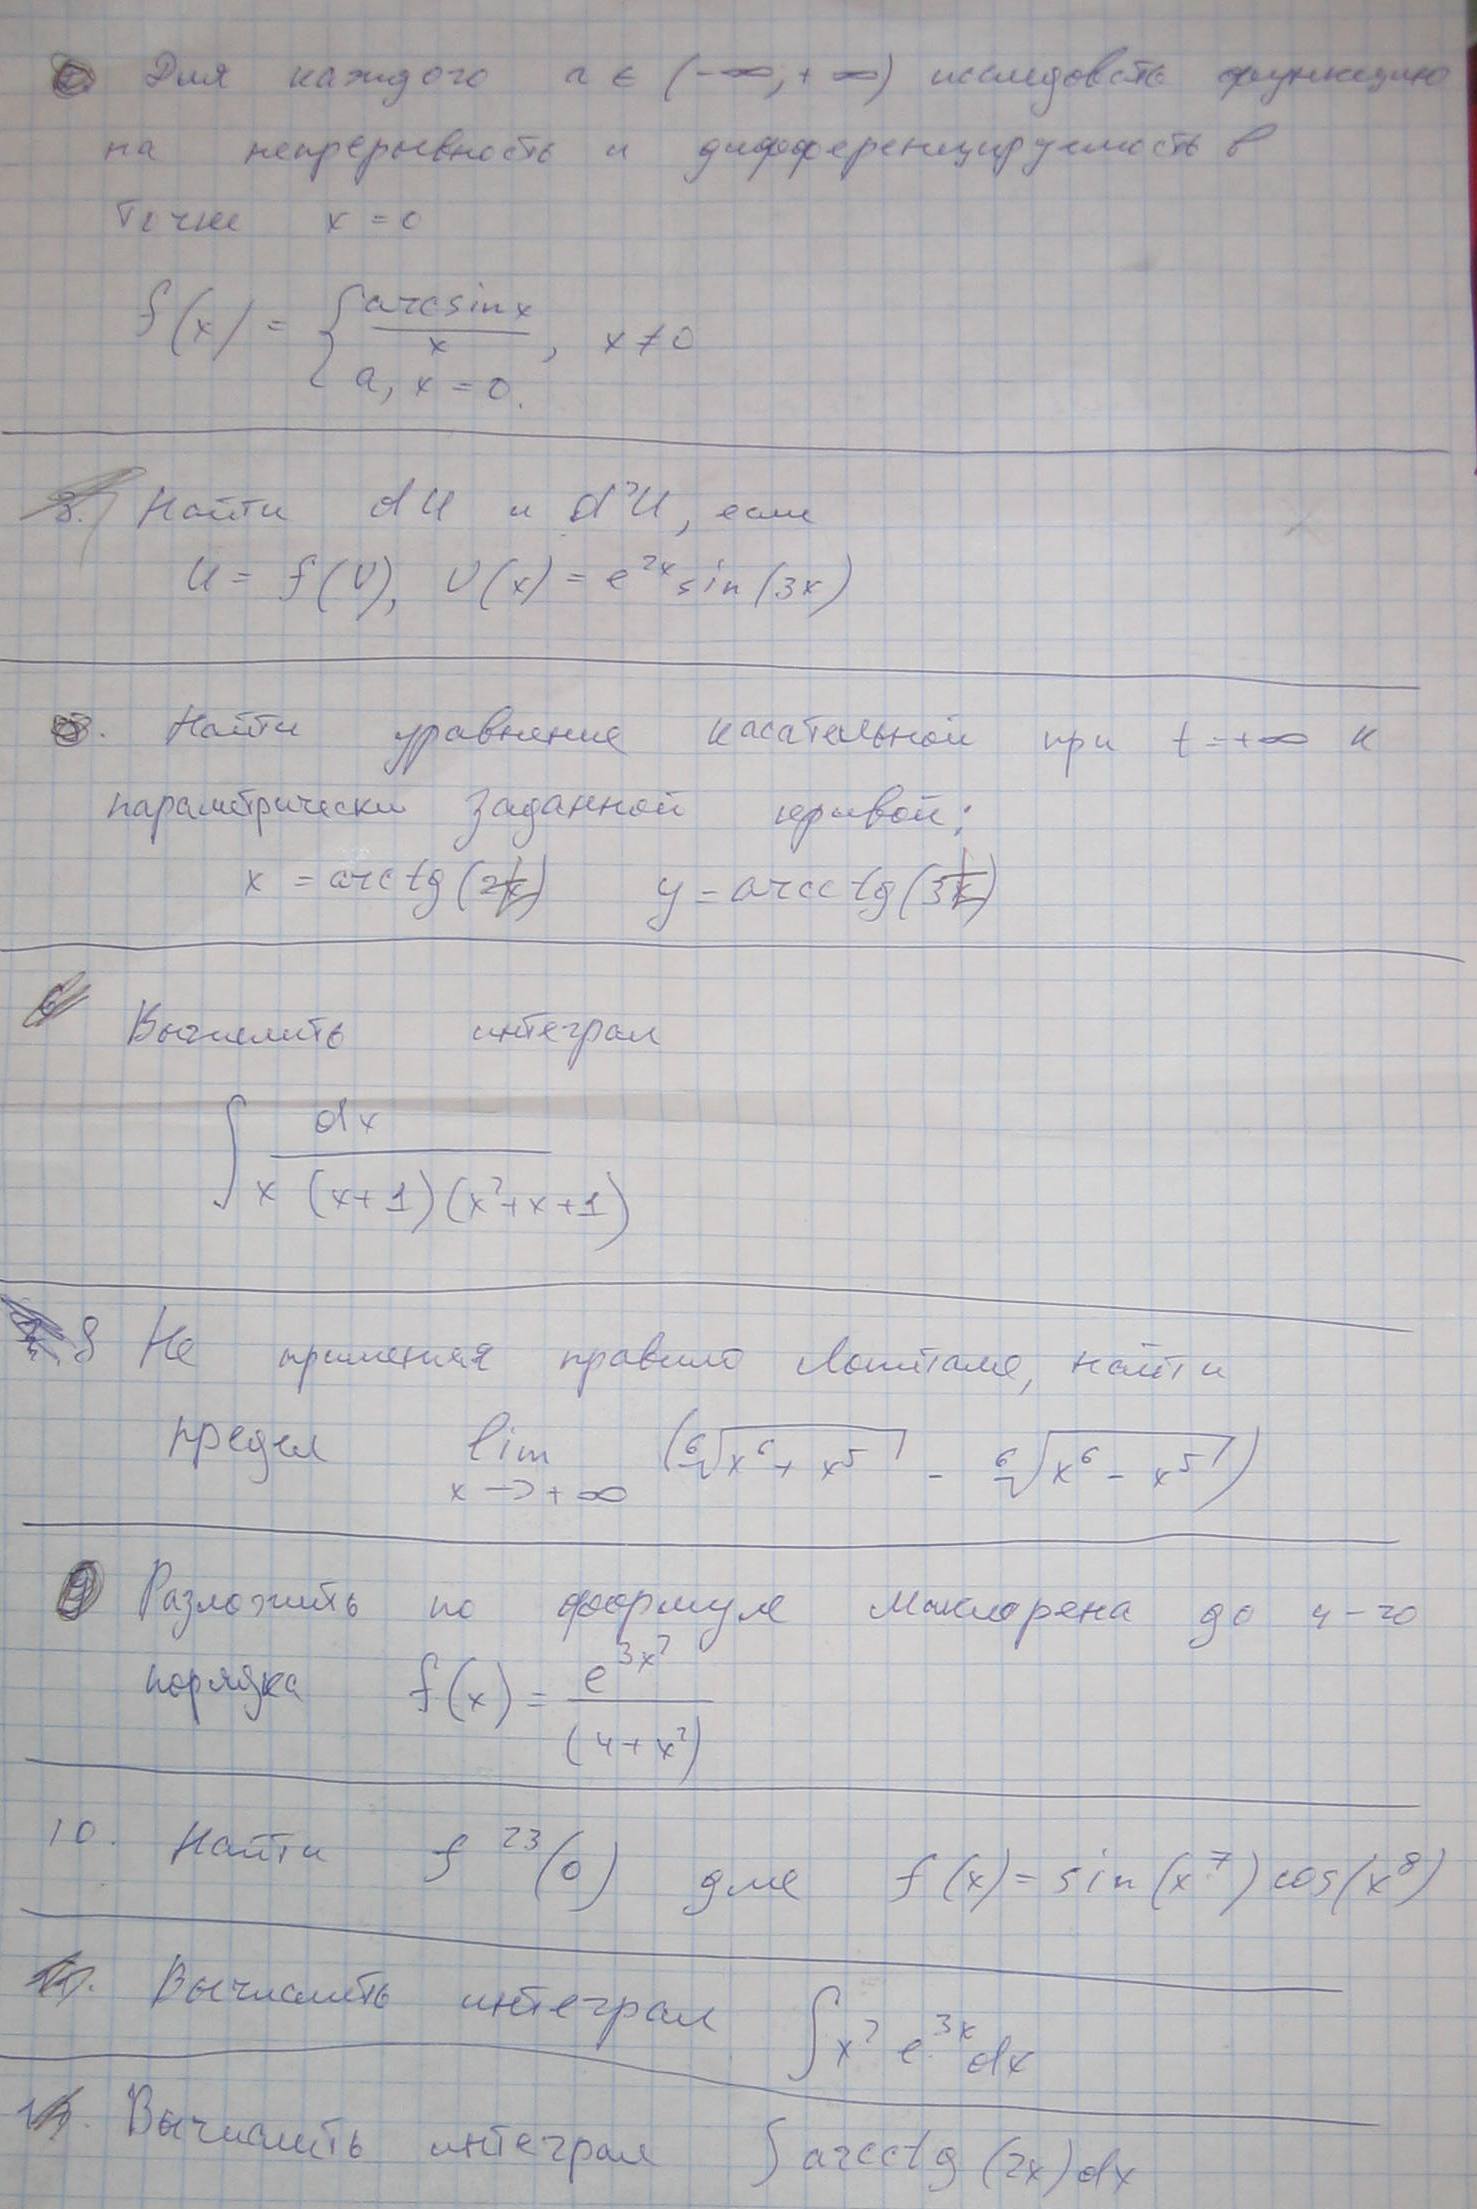 Для каждого a ∈ (-∞, +∞) исследовать функцию
на непрерывность и дифференцируемость в
точке x = 0
f(x) = { arcsin x / x, x ≠ 0
a, x = 0.
3. Найти dU и d²U, если
U = f(V), V(x) = e^{2x} sin(3x)
Найти уравнение касательной при t = +∞ к
параметрически заданной кривой:
x = arctg(2t) y = arcctg(3t)
6 Вычислить интеграл
∫ dx / x (x+1)(x²+x+1)
8 Не применяя правило Лопиталя, найти
предел lim x→+∞ (⁶√(x⁶ + x⁵) - ⁶√(x⁶ - x⁵))
9 Разложить по формуле Маклорена до 4-го
порядка f(x) = e^{3x²} / (4+x²)
10. Найти f²³(0) для f(x) = sin(x⁷) cos(x⁸)
Вычислить интеграл ∫ x² e^{3x} dx
Вычислить интеграл ∫ arcctg (2x) dx